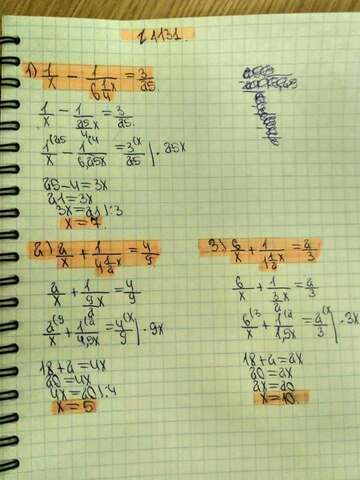 1131.
1) 1/x - 1/(6 1/4 x) = 3/25
1/x - 1/(25x/4) = 3/25
1(25/x - 1(4/6,25x = 3(x/25 | · 25x
25-4=3x
21=3x
3x=21|:3
x=7.
2) 2/x + 1/(4 1/2 x) = 4/9
2/x + 1/(9x/2) = 4/9
2(9/x + 1(2/4,5x = 4(x/9 | · 9x
18+2=4x
20=4x
4x=20|:4
x=5
3) 6/x + 1/(1 1/2 x) = 2/3
6/x + 1/(3x/2) = 2/3
6(3/x + 1(2/1,5x = 2(x/3 | · 3x
18+2=2x
20=2x
2x=20
x=10.